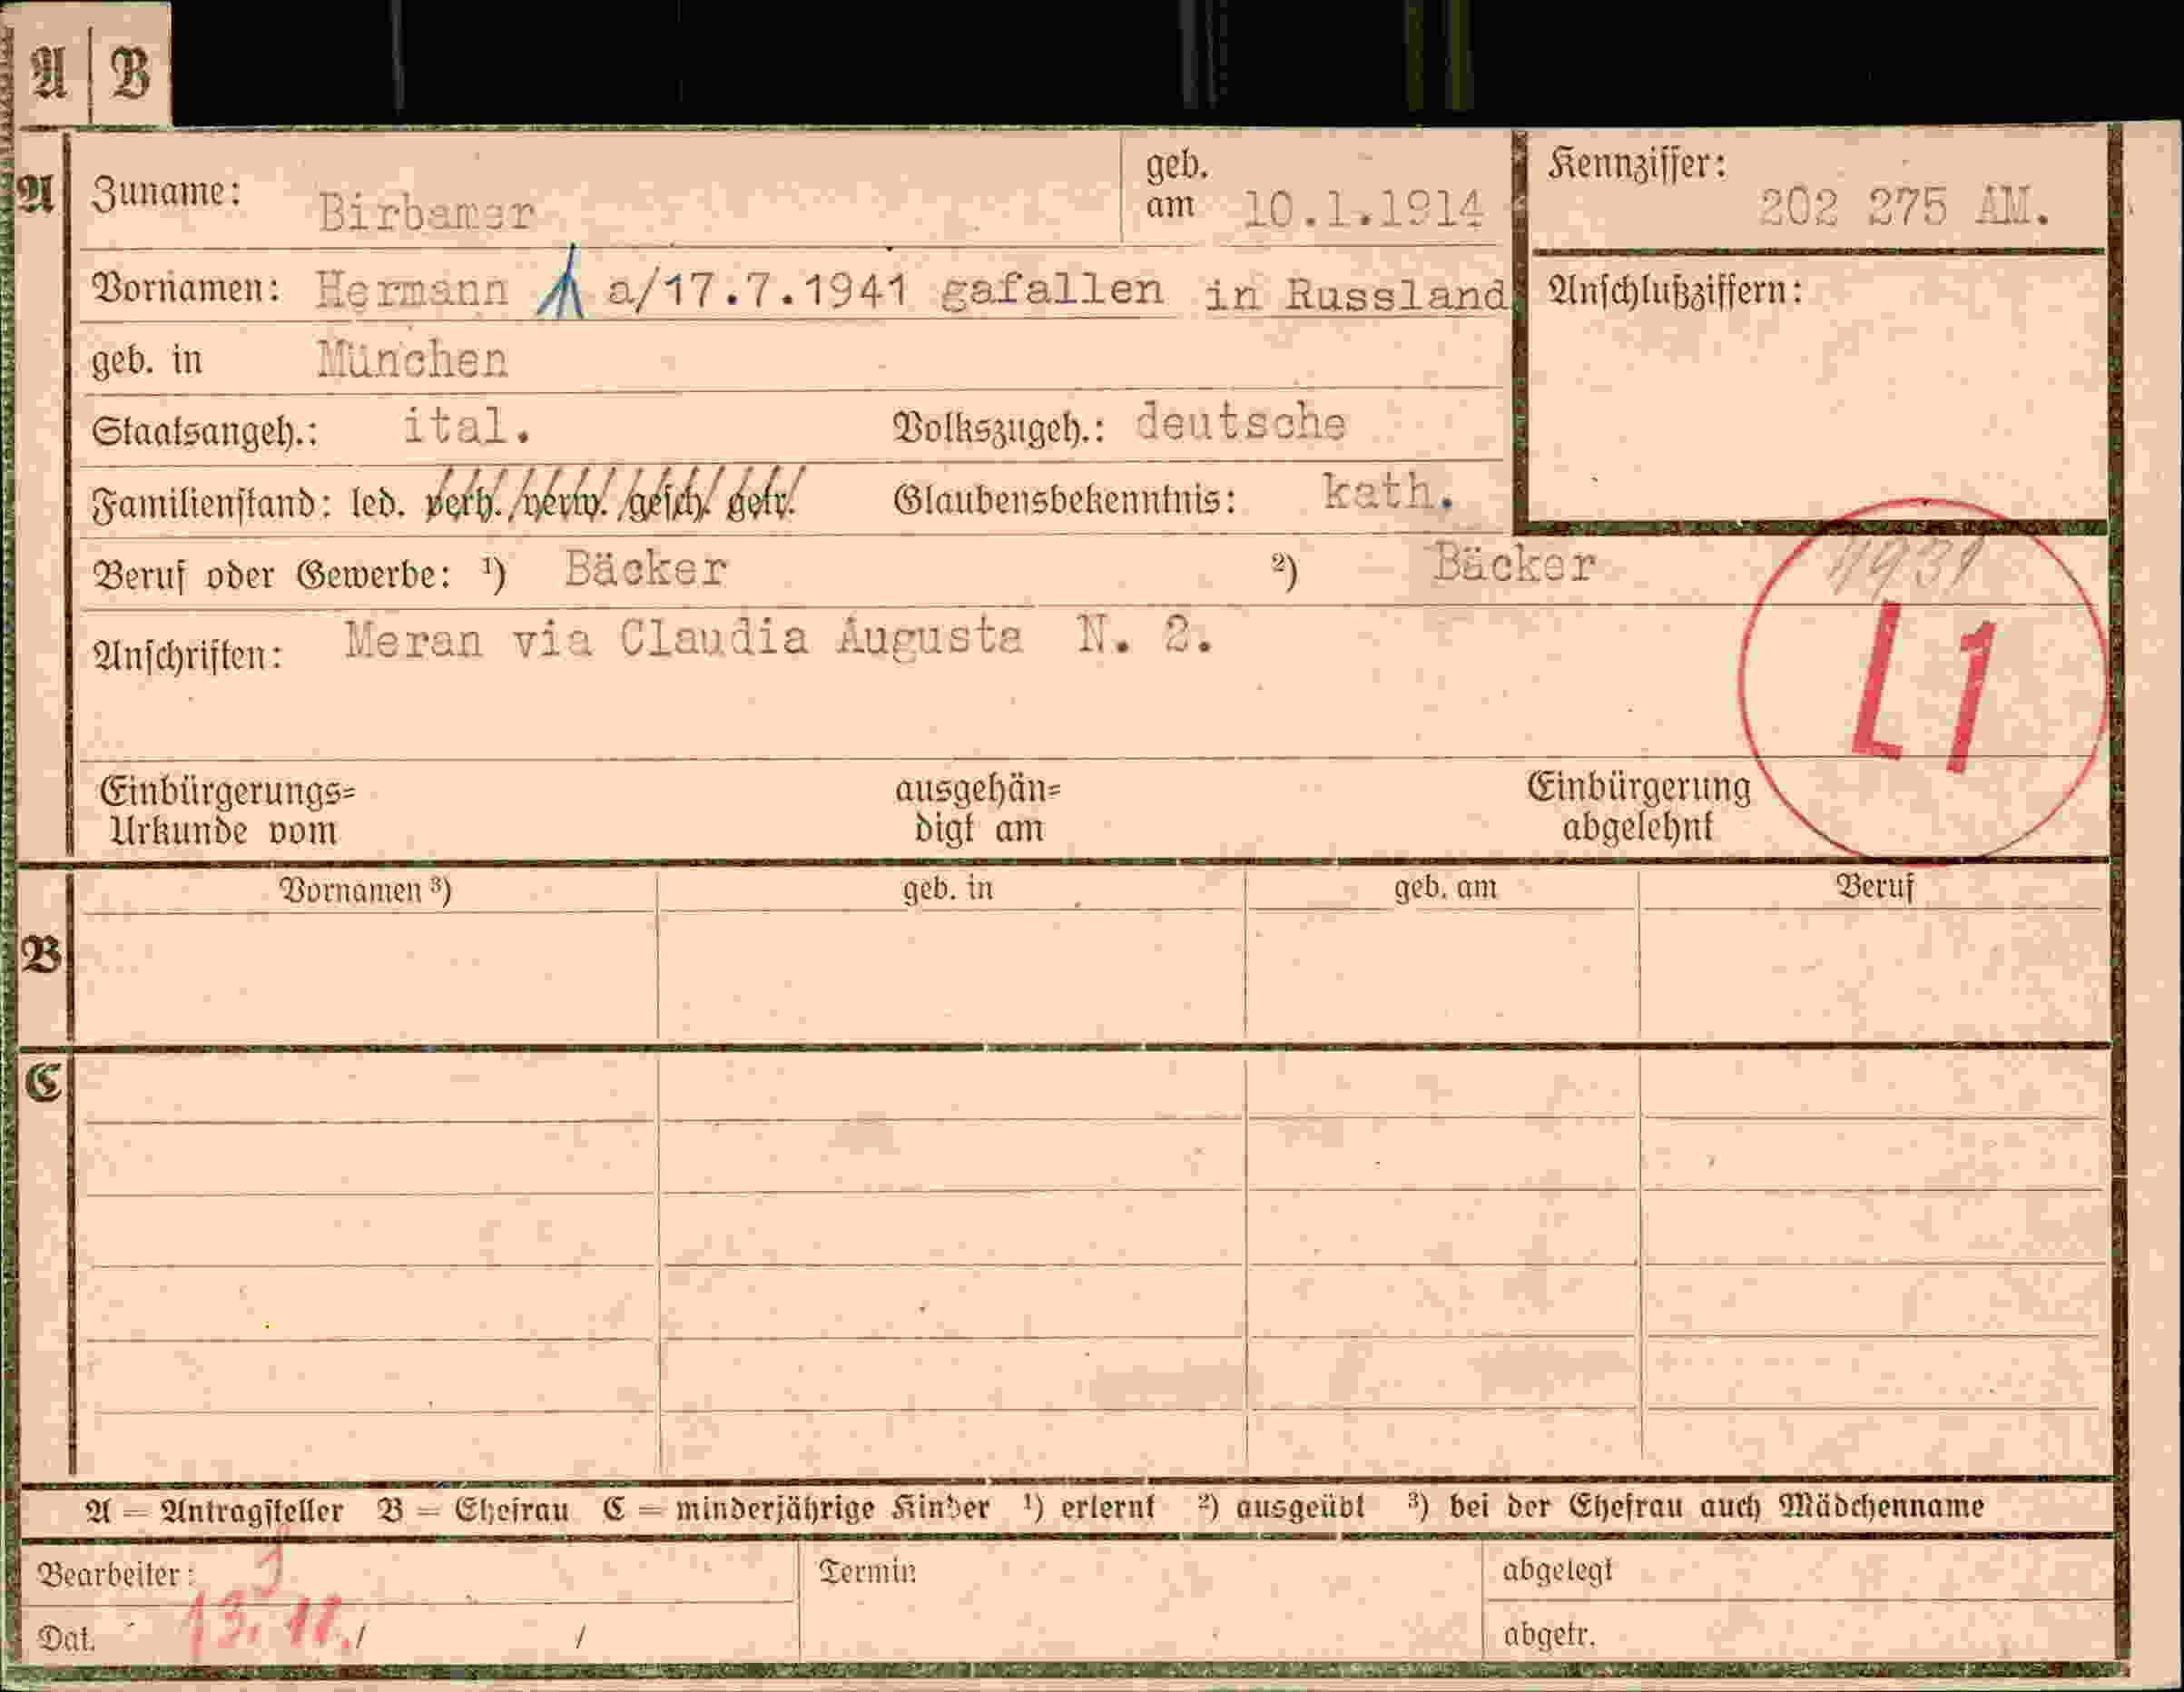 A B
A Zuname: Birbamer geb. am 10.1.1914 Kennziffer: 202 275 AM.
Vornamen: Hermann a/17.7.1941 gafallen in Russland Anschlußziffern:
geb. in München
Staatsangeh.: ital. Volkszugeh.: deutsche
Familienstand: led. verh. verw. gesch. getr. Glaubensbekenntnis: kath.
Beruf oder Gewerbe: ¹) Bäcker ²) Bäcker
Anschriften: Meran via Claudia Augusta N. 2.
L 1
Einbürgerungs= ausgehän= Einbürgerung
Urkunde vom digt am abgelehnt
Vornamen ³) geb. in geb. am Beruf
B
C
A = Antragsteller B = Ehefrau C = minderjährige Kinder ¹) erlernt ²) ausgeübt ³) bei der Ehefrau auch Mädchenname
Bearbeiter: Termin abgelegt
Dat. / / abgetr.